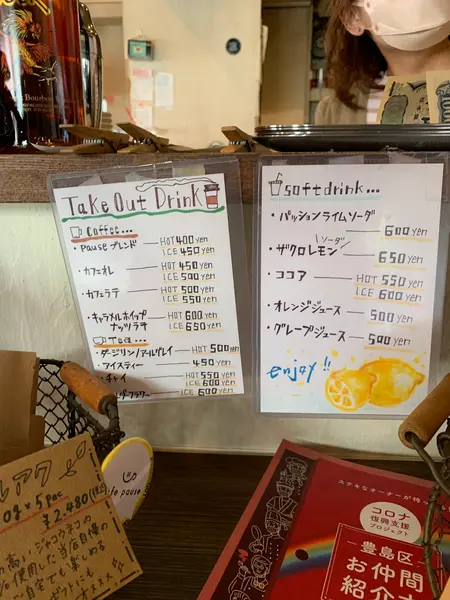 Bourbon
Take Out Drink
Coffee...
・Pause ブレンド HOT 400 yen
ICE 450 yen
・カフェオレ HOT 450 yen
ICE 500 yen
・カフェラテ HOT 500 yen
ICE 550 yen
・キャラメルホイップナッツラテ HOT 600 yen
ICE 650 yen
Tea...
・ダージリン/アールグレイ HOT 500 yen
・アイスティー 450 yen
・チャイ HOT 550 yen
ICE 600 yen
ICE 600 yen
soft drink...
・パッションライムソーダ
600 yen
・ザクロレモン\ソーダ/
650 yen
ココア HOT 550 yen
ICE 600 yen
・オレンジジュース
500 yen
・グレープジュース
500 yen
enjoy!!
pause
¥2,480
使用した当店自慢の
ご自宅でも楽しめる
ステキなオーナーが
コロナ
復興支援
プロジェクト
豊島区
お仲間
紹介